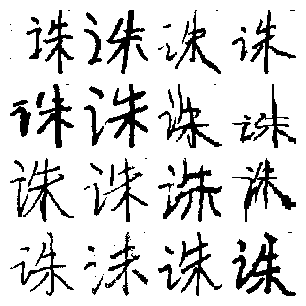 诛诛诛诛
诛诛诛诛
诛诛诛诛
诛诛诛诛